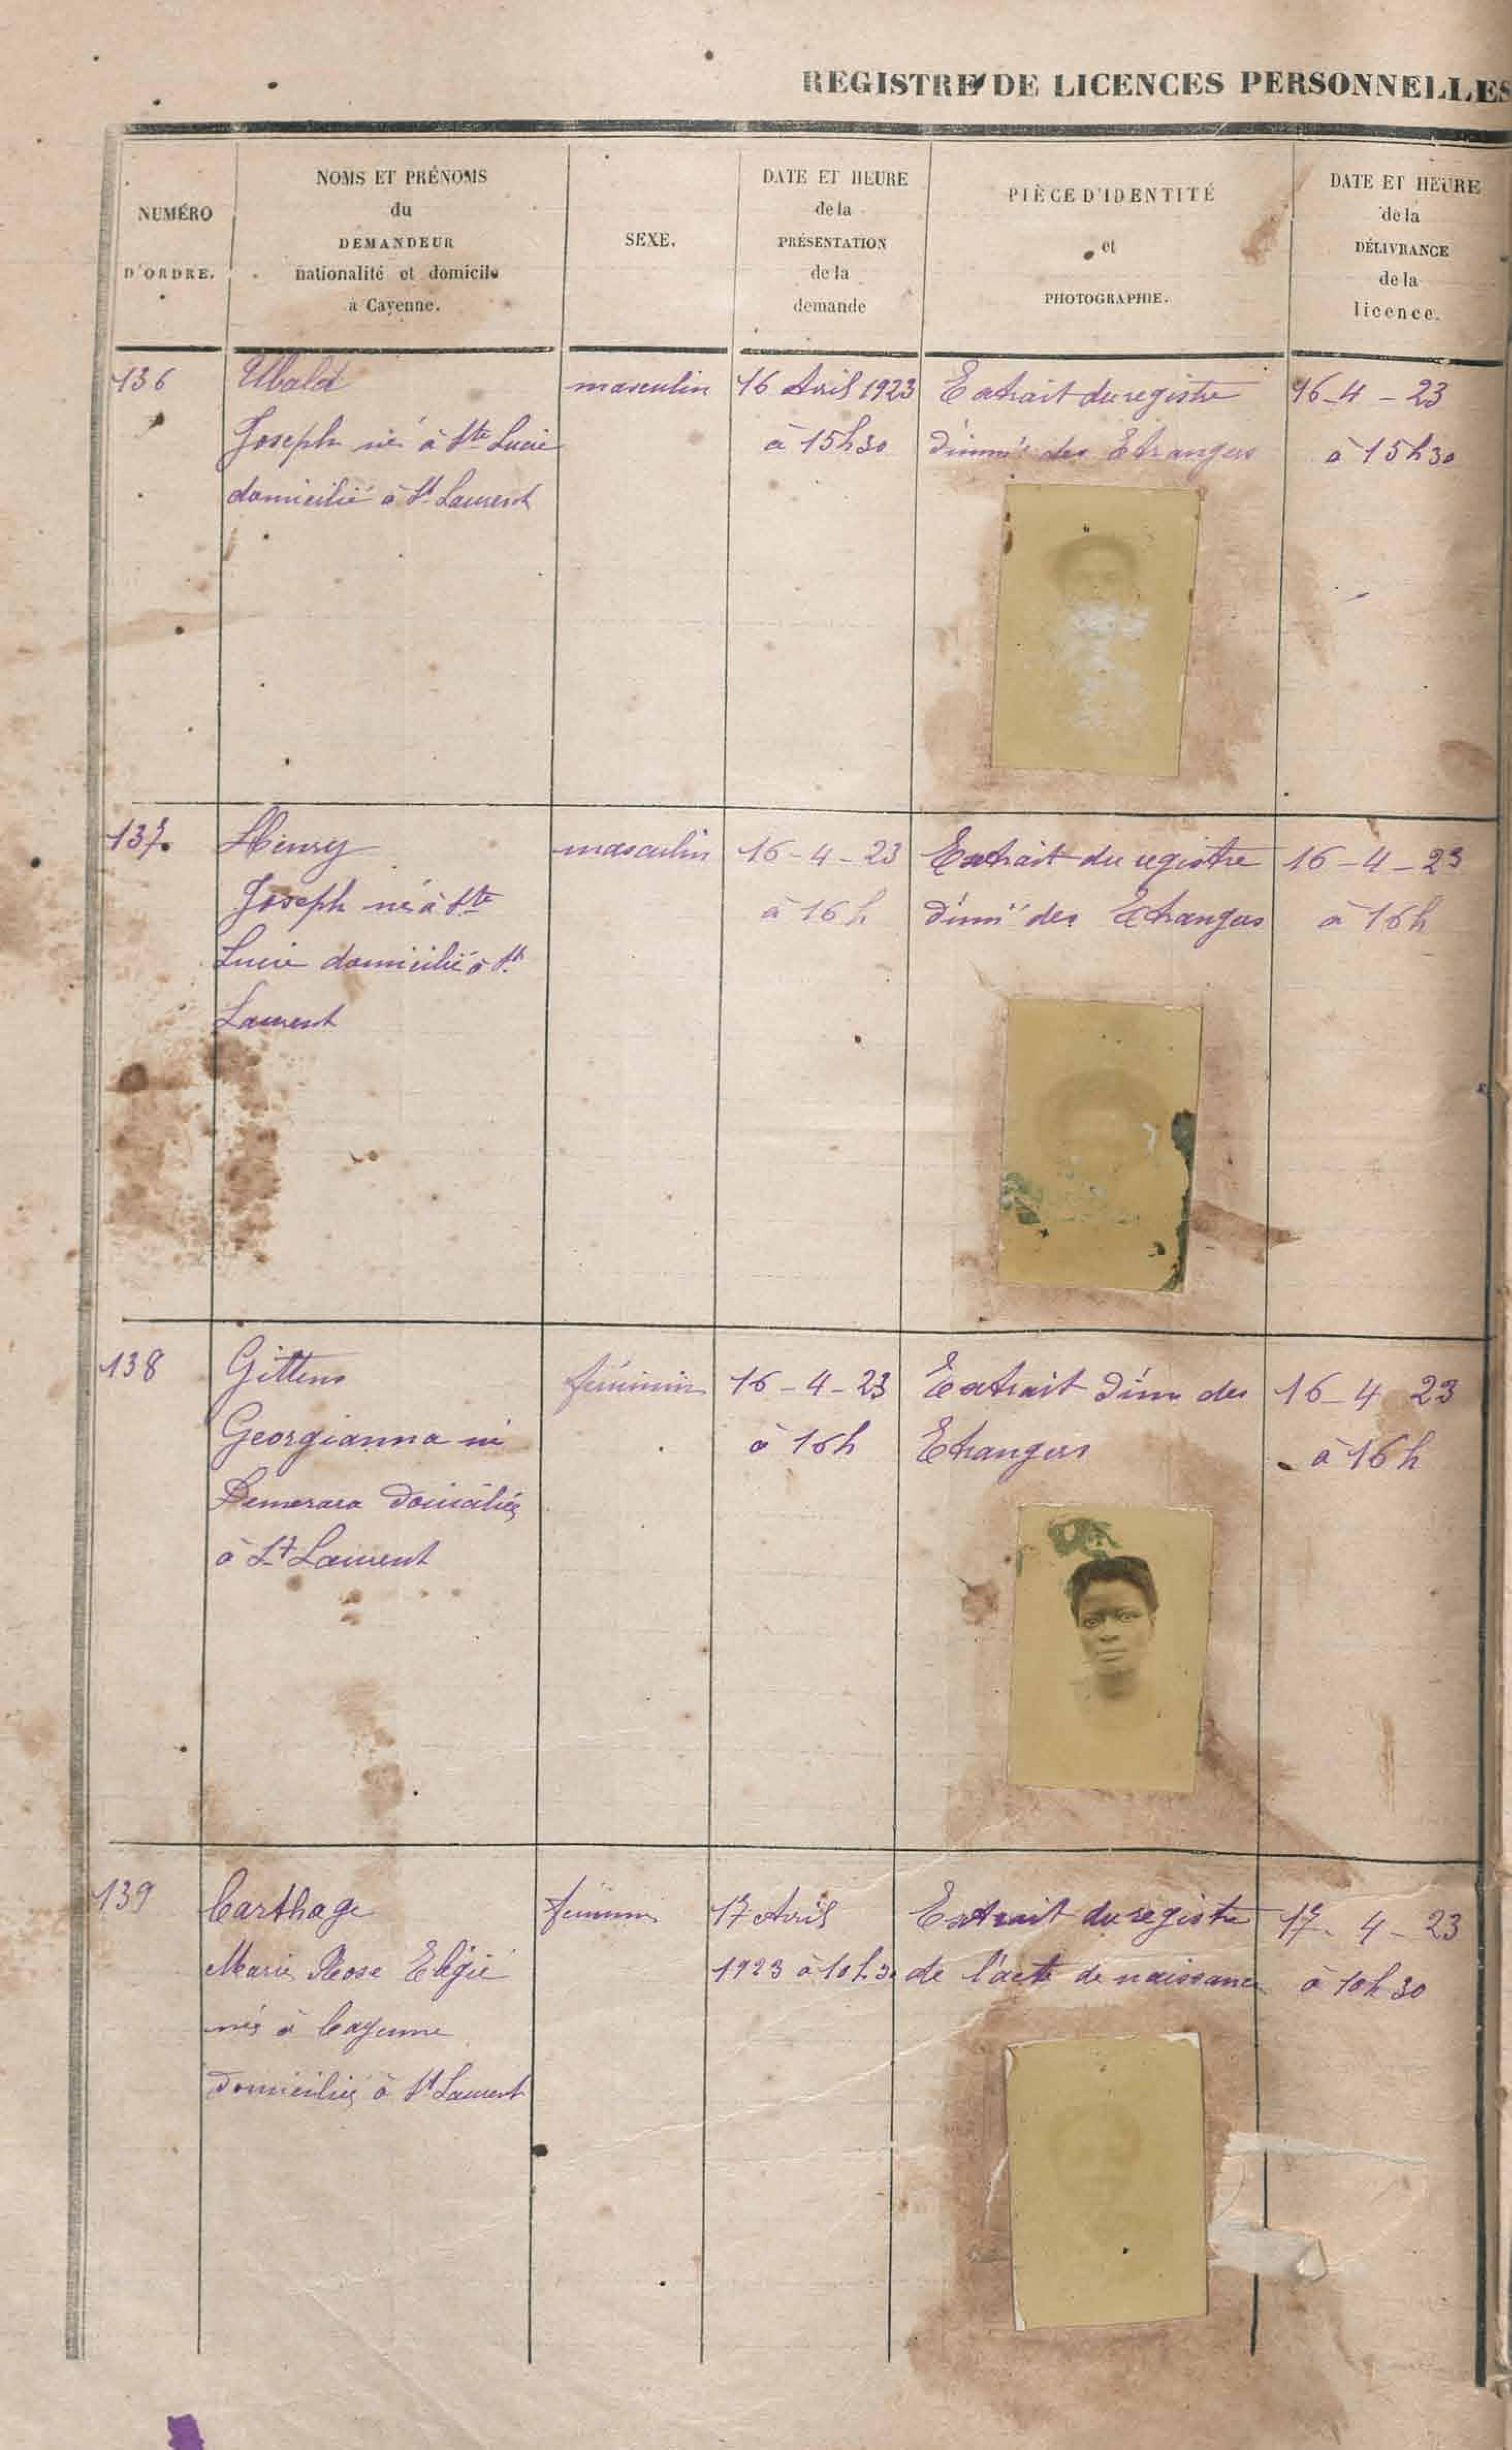 REGISTRE DE LICENCES PERSONNELLES
NUMÉRO
D'ORDRE.
NOMS ET PRÉNOMS
du
DEMANDEUR
nationalité et domicile
à Cayenne.
SEXE.
DATE ET HEURE
de la
PRÉSENTATION
de la
demande
PIÈCE D'IDENTITÉ
et
PHOTOGRAPHIE.
DATE ET HEURE
de la
DÉLIVRANCE
de la
licence.
136
Ubald
Joseph né à Ste Lucie
domicilié à St Laurent
masculin
16 Avril 1923
à 15h30
Extrait du registre
d'imm des Etrangers
16-4-23
à 15h30
137
Henry
Joseph né à Ste
Lucie domicilié à St
Laurent
masculin
16-4-23
à 16h
Extrait du registre
d'imm des Etrangers
16-4-23
à 16h
138
Gittens
Georgianna né
Demerara domiciliée
à St Laurent
féminin
16-4-23
à 16h
Extrait d'imm des
Etrangers
16-4 23
à 16h
139
Carthage
Marie Rose
née à Cayenne
domiciliée à St Laurent
féminin
17 Avril
1923 à 10h30
Extrait du registre
de l'acte de naissance
17-4-23
à 10h30